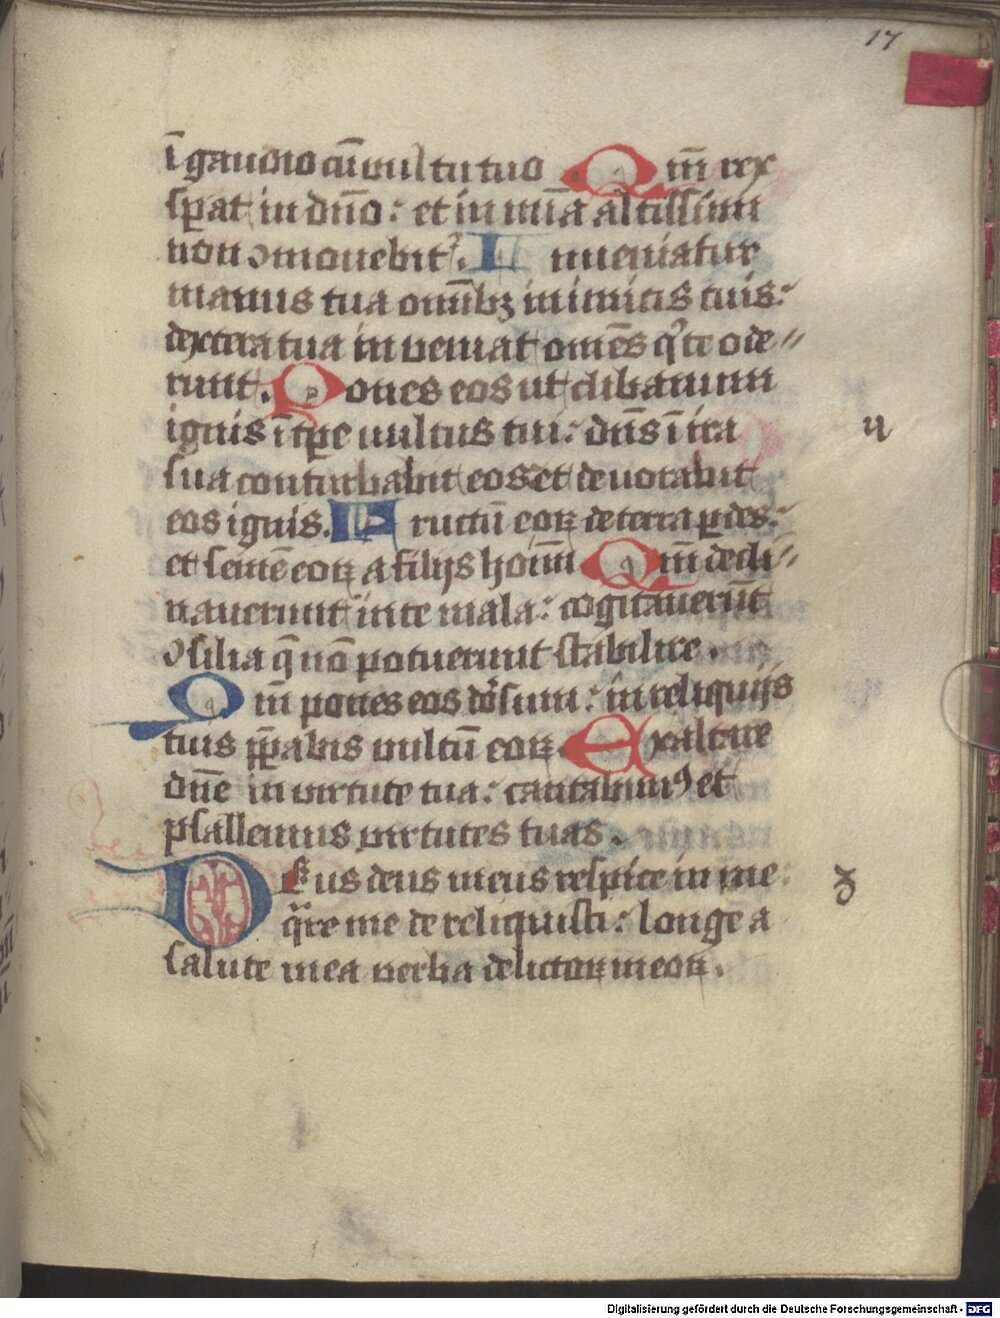 17
ī gaudio cū uultu tuo Qm̄ rex
sp̄at in dn̄o : et in mīa altissimi
non ꝯmouebit᷑. Inueniatur
manus tua omībꝫ inimicis tuis :
dextera tua inueniat omēs q̇ te ode〃
runt . Pones eos ut clibanum
ignis ī tp̄e uultus tui : dn̄s ī ira
u
sua conturbabit eos et deuorabit
eos ignis. Fructū eoꝝ de terra ꝑdes :
et semē eoꝝ a filijs hoīm Qm̄ decli〃
nauerunt in te mala : cogitauerūt
ꝯsilia q̄ nō potuerunt stabilire .
Qm̄ pones eos dorsum : in reliquijs
tuis p̄p̄abis uultū eoꝝ Exaltare
dn̄e in uirtute tua : cantabimꝰ et
psallemus uirtutes tuas .
Deus deus meus respice in me :
ꝫ
q̈re me dereliquisti : longe a
salute mea uerba delictoꝝ meoꝝ .
Digitalisierung gefördert durch die Deutsche Forschungsgemeinschaft - DFG